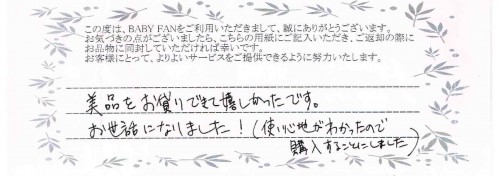 この度は、BABY FANをご利用いただきまして、誠にありがとうございます。
お気づきの点がございましたら、こちらの用紙にご記入いただき、ご返却の際に
お品物に同封していただければ幸いです。
お客様にとって、よりよいサービスをご提供できるように努力いたします。
美品をお貸りできて嬉しかったです。
お世話になりました！（使い心地がわかったので
購入することにしました）